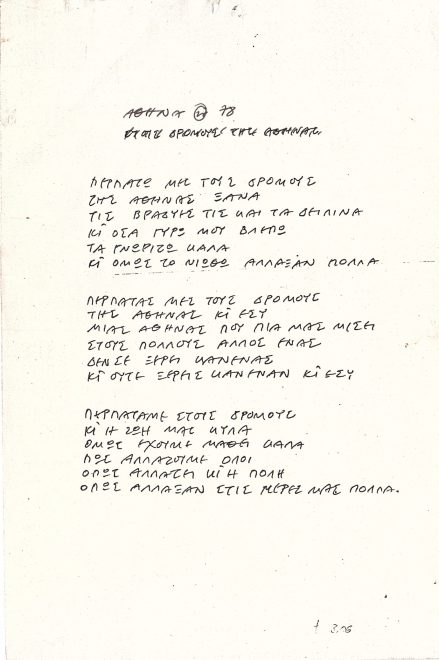 ΑΘΗΝΑ 78
ΣΤΟΥΣ ΔΡΟΜΟΥΣ ΤΗΣ ΑΘΗΝΑΣ
ΠΕΡΠΑΤΩ ΜΕΣ ΤΟΥΣ ΔΡΟΜΟΥΣ
ΤΗΣ ΑΘΗΝΑΣ ΞΑΝΑ
ΤΙΣ ΒΡΑΔΥΕΣ ΤΙΣ ΚΑΙ ΤΑ ΔΕΙΛΙΝΑ
ΚΙ ΟΣΑ ΓΥΡΩ ΜΟΥ ΒΛΕΠΩ
ΤΑ ΓΝΩΡΙΖΩ ΚΑΛΑ
ΚΙ ΟΜΩΣ ΤΟ ΝΙΩΘΩ ΑΛΛΑΞΑΝ ΠΟΛΛΑ
ΠΕΡΠΑΤΑΣ ΜΕΣ ΤΟΥΣ ΔΡΟΜΟΥΣ
ΤΗΣ ΑΘΗΝΑΣ ΚΙ ΕΣΥ
ΜΙΑΣ ΑΘΗΝΑΣ ΠΟΥ ΠΙΑ ΜΑΣ ΜΙΣΕΙ
ΣΤΟΥΣ ΠΟΛΛΟΥΣ ΑΛΛΟΣ ΕΝΑΣ
ΔΕΝ ΣΕ ΞΕΡΕΙ ΚΑΝΕΝΑΣ
ΚΙ ΟΥΤΕ ΞΕΡΕΙΣ ΚΑΝΕΝΑΝ ΚΙ ΕΣΥ
ΠΕΡΠΑΤΑΜΕ ΣΤΟΥΣ ΔΡΟΜΟΥΣ
ΚΙ Η ΖΩΗ ΜΑΣ ΚΥΛΑ
ΟΜΩΣ ΕΧΟΥΜΕ ΜΑΘΕΙ ΚΑΛΑ
ΠΩΣ ΑΛΛΑΖΟΥΜΕ ΟΛΟΙ
ΟΠΩΣ ΑΛΛΑΖΕΙ ΚΙ Η ΠΟΛΗ
ΟΠΩΣ ΑΛΛΑΞΑΝ ΣΤΙΣ ΜΕΡΕΣ ΜΑΣ ΠΟΛΛΑ.